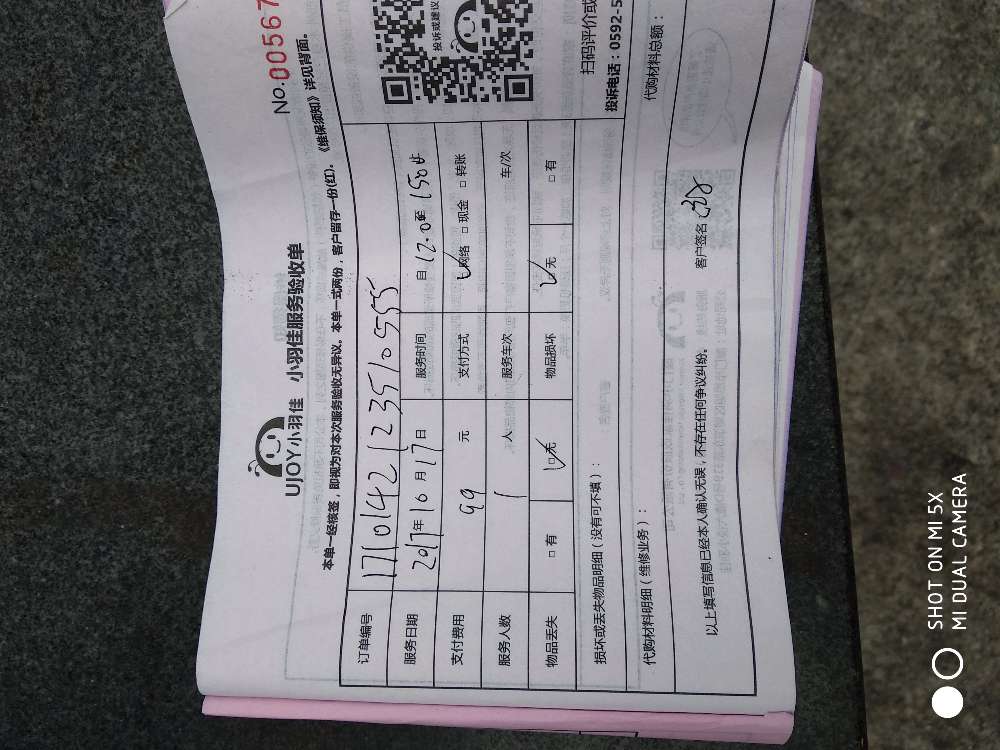 No.00567
UJOY小羽佳 小羽佳服务验收单
本单一经核签，即视为对本次服务验收无异议。本单一式两份，客户留存一份(红)。《维保须知》详见背面。
订单编号 171014212351055​5
服务日期 2017年 10月 17日 服务时间 自 12.0 至 150
支付费用 99 元 支付方式 网络 □ 现金 □ 转账
服务人数 1 人 服务车次 车/次
物品丢失 □ 有 □ 无 物品损坏 □ 无 □ 有
损坏或丢失物品明细（没有可不填）：
投诉或建议
扫码评价或
投诉电话：0592-5
代购材料明细（维修业务）： 代购材料总额：
以上填写信息已经本人确认无误，不存在任何争议纠纷。 客户签名：
SHOT ON MI 5X
MI DUAL CAMERA